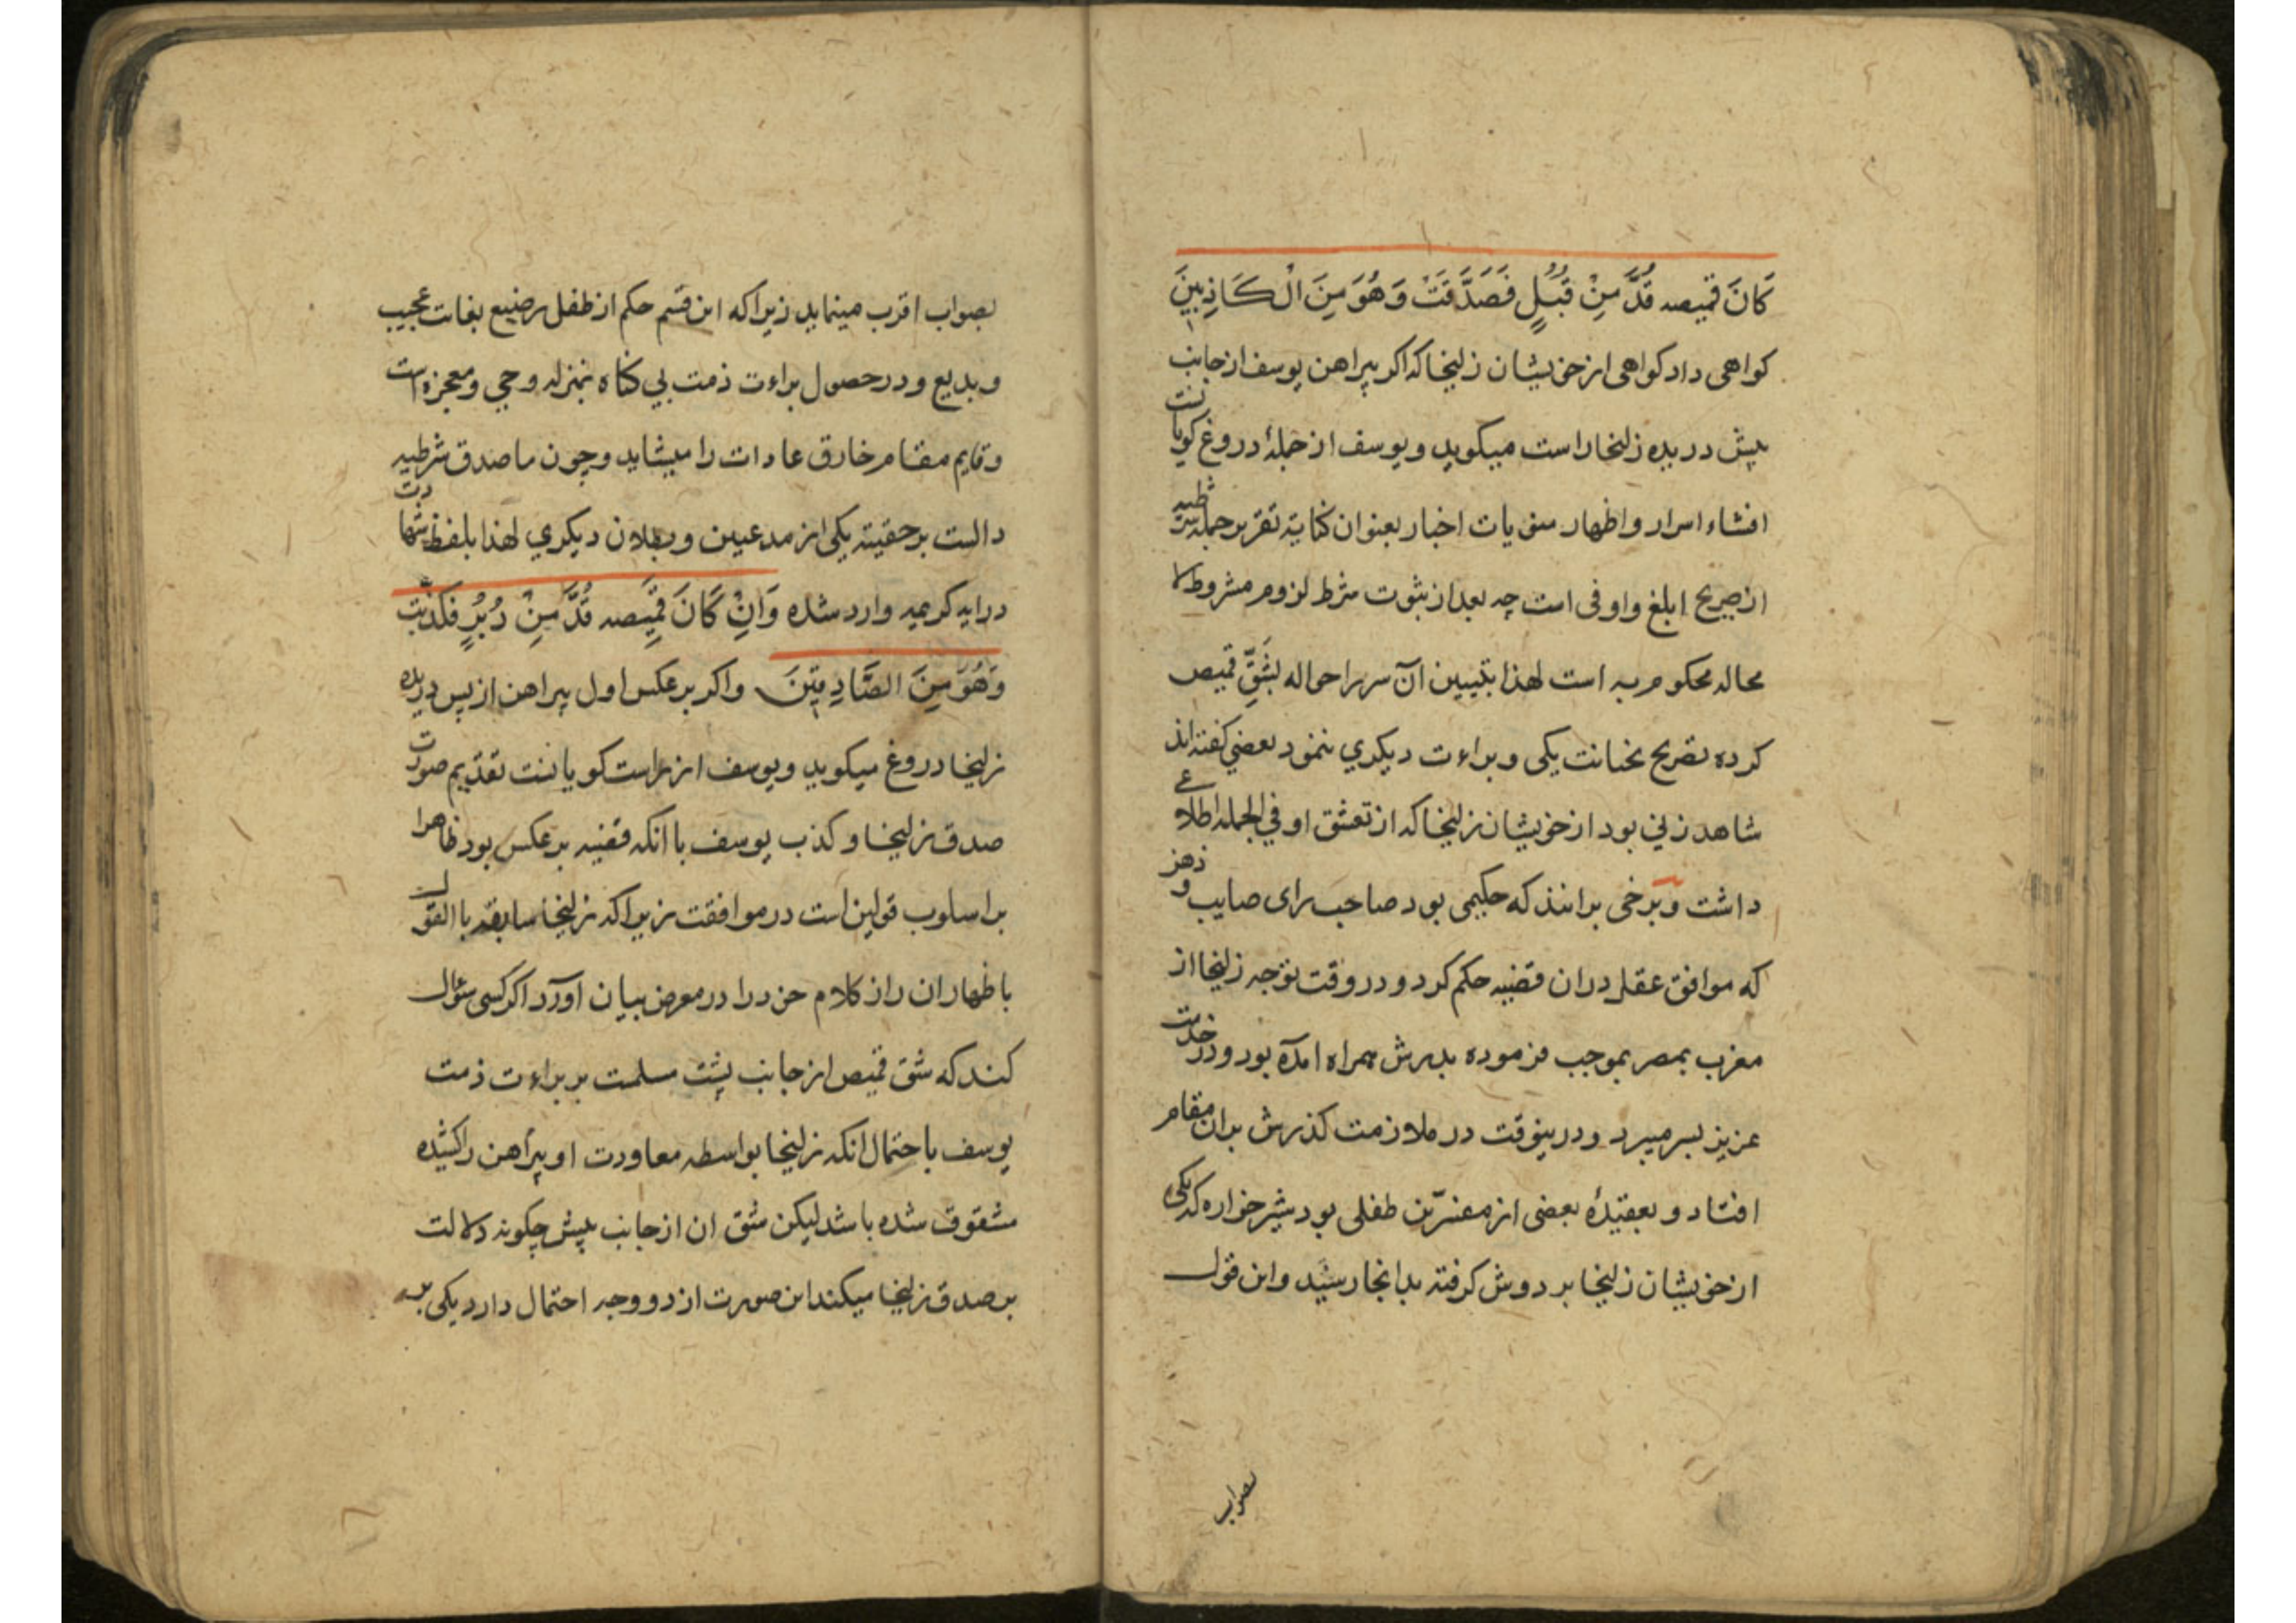 كَانَ قمیصه قُدَّ مِنْ قُبُلٍ فَصَدَقَتْ وَهُوَ مِنَ الْكَاذِبِينَ
کواهی داد کواهی از خویشان زلیخا که اکر پیراهن یوسف از جانب
پیش دریده زلیخا راست میکوید و یوسف از جملهٔ دروغ کویانست
افشاء اسرار و اظهار منویات اخبار بعنوان کنایة تقریر جمله شرطیه
از صریح ابلغ و اوفی است چه بعد از ثبوت شرط لزوم مشروط لا
محاله محکوم به است لهذا بتبیین آن سر را حواله بشَقِّ قمیص
کرده تصریح بخیانت یکی و براءت دیکری ننمود بعضی کفته اند
شاهد زنی بود از خویشان زلیخا که از تعشق او فی الجمله اطلاع
داشت و برخی برانند که حکیمی بود صاحب رای صایب و ذهن
که موافق عقل دران قضیه حکم کرد و در وقت توجه زلیخا از
مغرب بمصر بموجب فرموده پدرش همراه امده بود و در خدمت
عزیز بسر میبرد و درینوقت در ملازمت کذرش بدان مقام
افتاد و بعقیدهٔ بعضی از مفسّرین طفلی بود شیرخواره که یکی
از خویشان زلیخا بر دوش کرفته بدانجا رسید و این قول
بصواب
بصواب اقرب مینماید زیرا که این قسم حکم از طفل رضیع بغات عجیب
و بدیع و در حصول براءت ذمت بی کناه بمنزله وحی و معجزه است
و قایم مقام خارق عادات را میشاید و چون ما صدق شرطیه
دالست بر حقیته یکی از مدعیین و بطلان دیکری لهذا بلفظ شهادت
در ایه کریمه وارد شده وَاِنْ كَانَ قمِيصه قُدَّ مِنْ دُبُرٍ فَكَذَبَت
وَهُوَ مِنَ الصَّادِقِينَ واکر بر عکس اول پیراهن از پس دریده
زلیخا دروغ میکوید و یوسف از راست کویانست تقدیم صورت
صدق زلیخا و کذب یوسف با انکه قضیه بر عکس بود ظاهرا
بر اسلوب قولین است در موافقت زیرا که زلیخا سابقه با القول
باظهار ان راز کلام خود را در معرض بیان اورد اکر کسی سؤال
کند که شق قمیص از جانب پشت مسلمت بر براءت ذمت
یوسف باحتمال انکه زلیخا بواسطه معاودت او پیراهن را کشیده
مشقوق شده باشد لیکن شق ان از جانب پیش چکونه دلالت
بر صدق زلیخا میکند این صورت از دو وجه احتمال دارد یکی بر